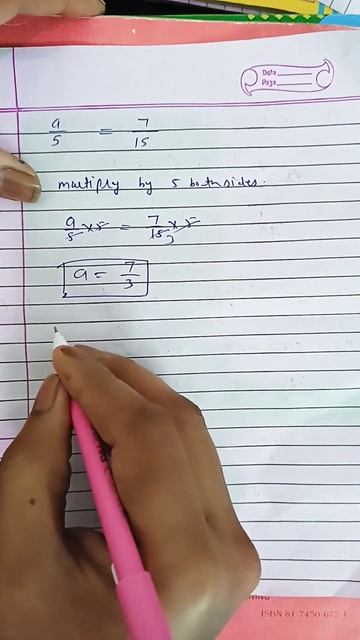 Date
Page
a/5 = 7/15
multiply by 5 both sides.
a/5 × 5 = 7/15 × 5
3
a = 7/3
ISBN 81-7450-672-1